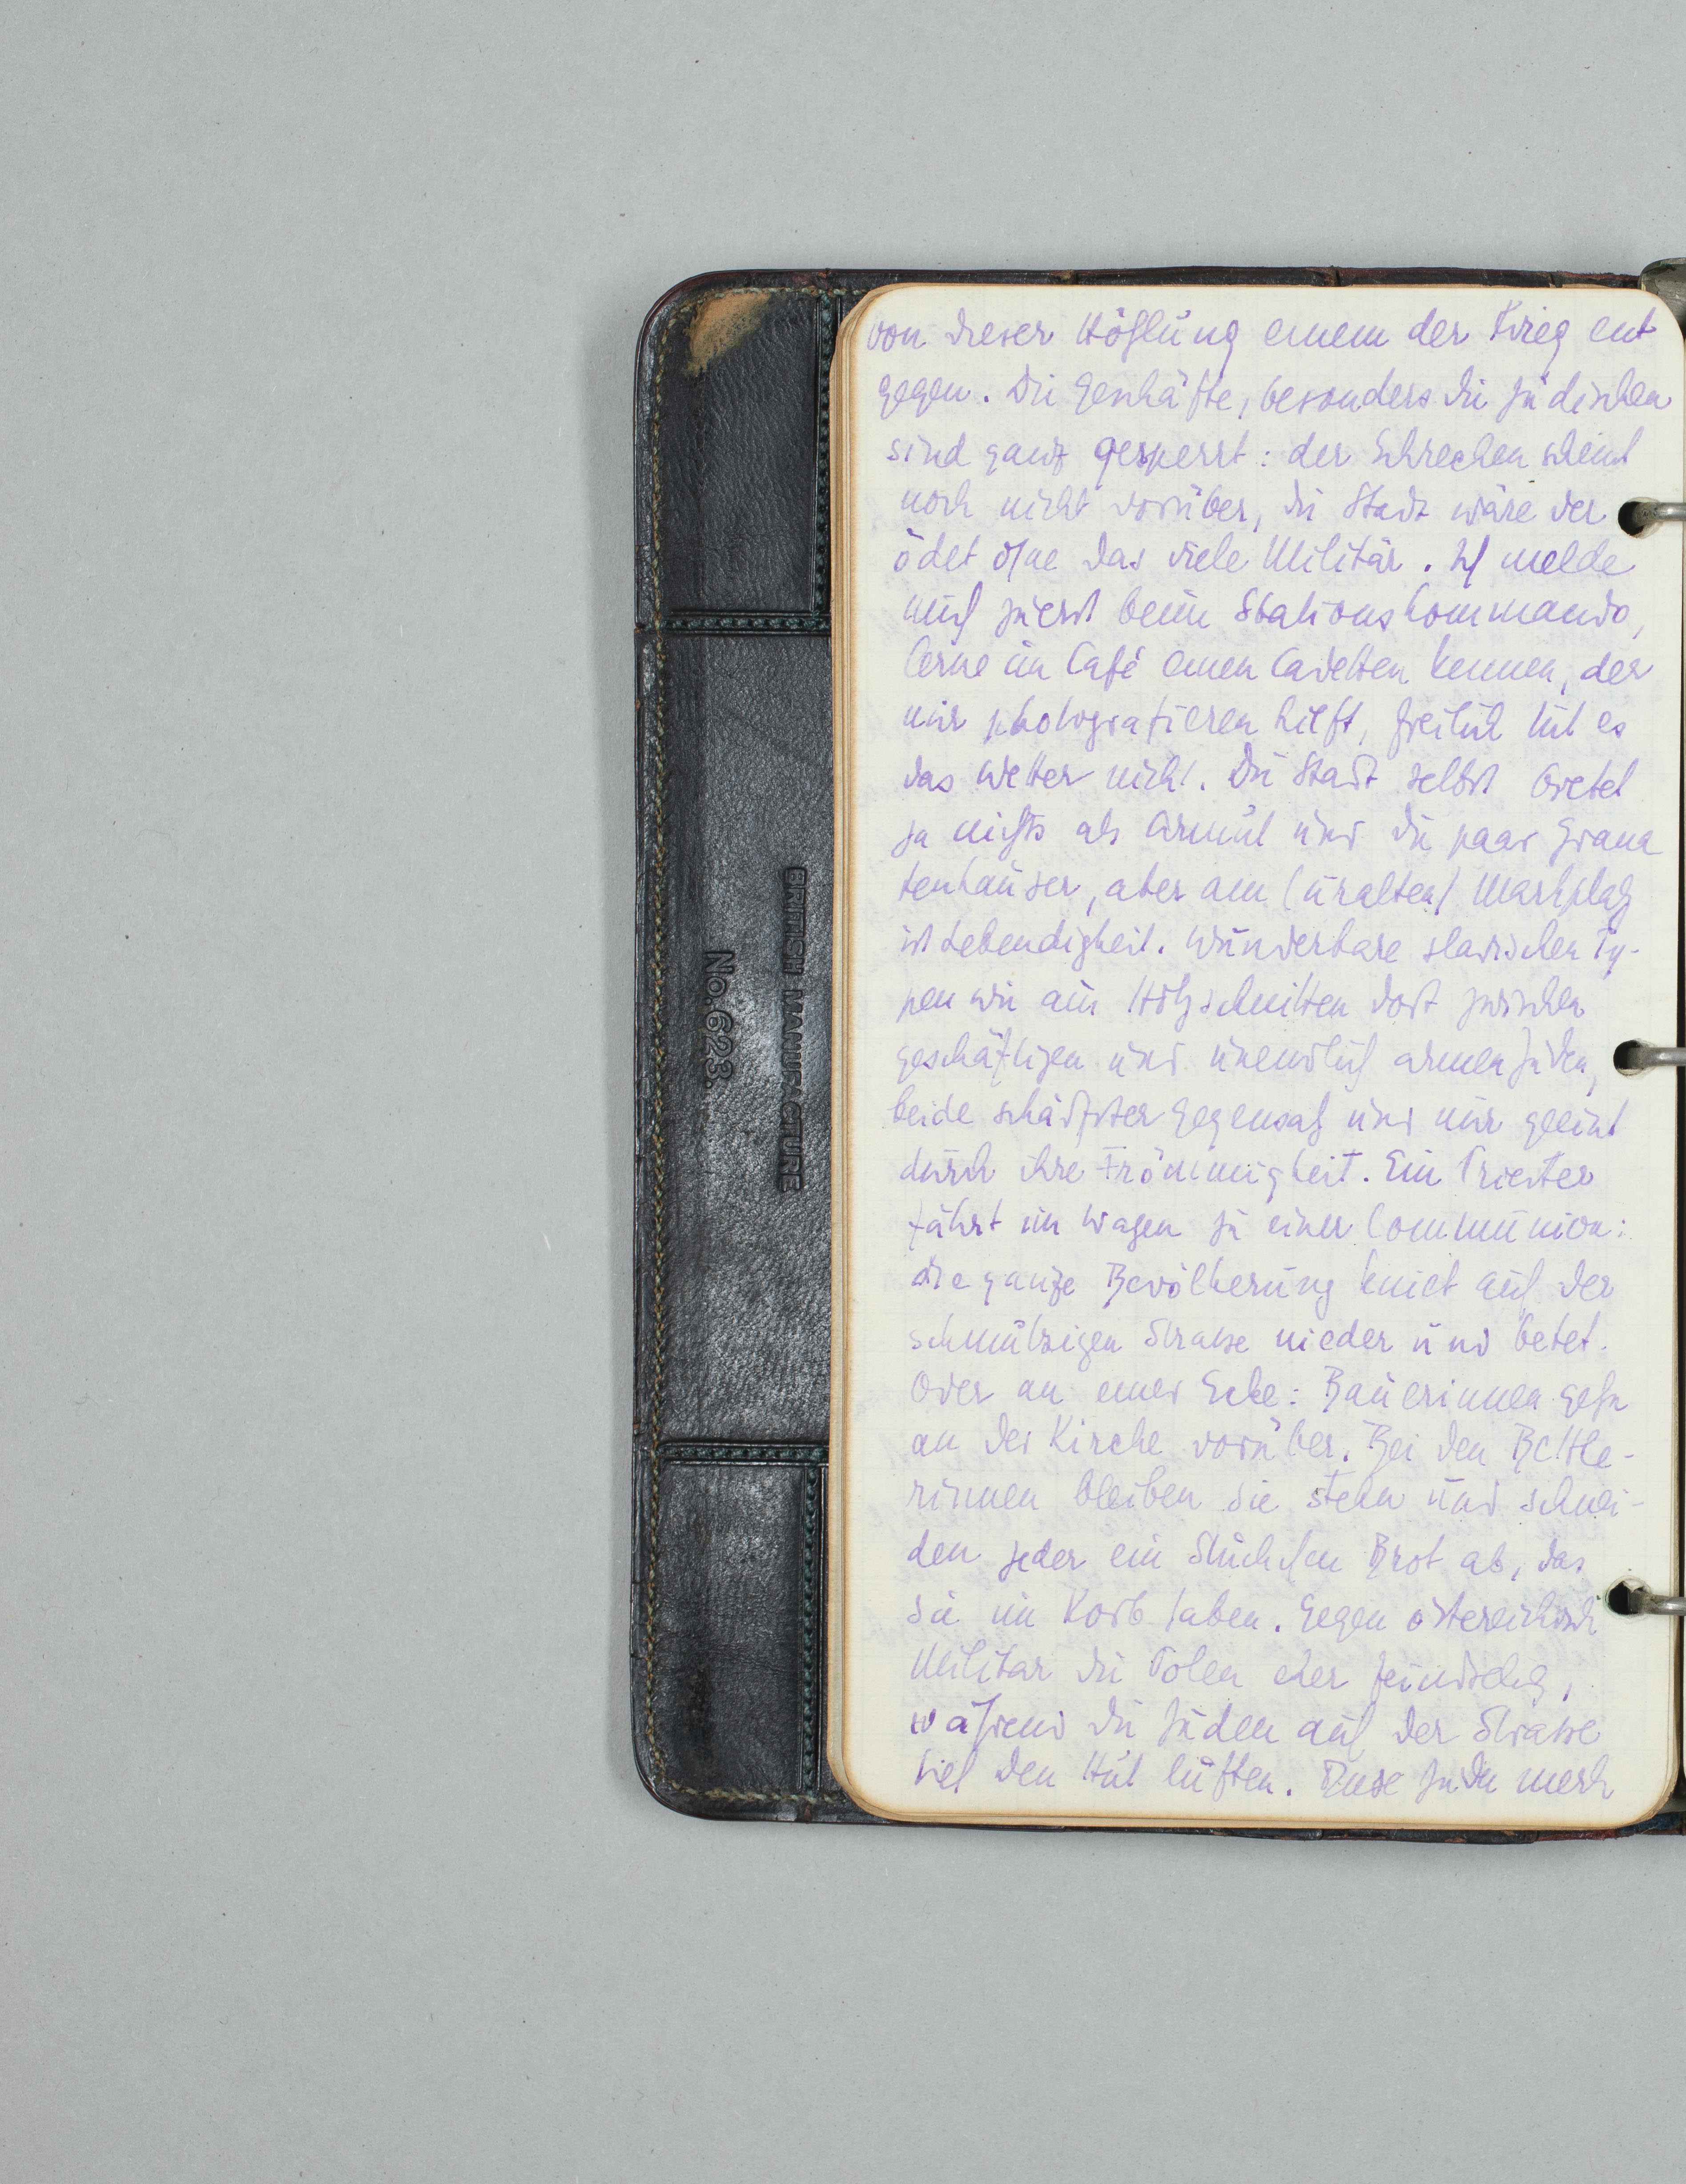 BRITISH MANUFACTURE
No. 623.
von dieser Höhlung einem der Krieg ent
gegen. Die Geschäfte, besonders die jüdischen
sind ganz gesperrt: der Schrecken scheint
noch nicht vorüber, die Stadt wäre ver
ödet ohne das viele Militär. Ich melde
mich zuerst beim Stationskommando,
lerne im Café einen Cadetten kennen, der
mir photografieren hilft, freilich tut es
das Wetter nicht. Die Stadt selbst bietet
ja nichts als Armut und die paar Grana
tenhäuser, aber am (uralten) Markplatz
ist Lebendigkeit. Wunderbare slavischen Ty-
pen wie aus Holzschnitten dort zwischen
geschäftigen und unendlich armen Juden,
beide schärfster Gegensatz und nur geeint
durch ihre Frömmigkeit. Ein Priester
fährt im Wagen zu einer Communion:
die ganze Bevölkerung kniet auf der
schmutzigen Strasse nieder und betet.
Oder an einer Ecke: Bauerinnen gehn
an der Kirche vorüber. Bei den Bettle-
rinnen bleiben sie stehn und schnei-
den jeder ein Stückchen Brot ab, das
sie im Korb haben. Gegen östereichisch
Militär die Polen eher feindselig,
während die Juden auf der Strasse
tief den Hut lüften. Diese Juden merk